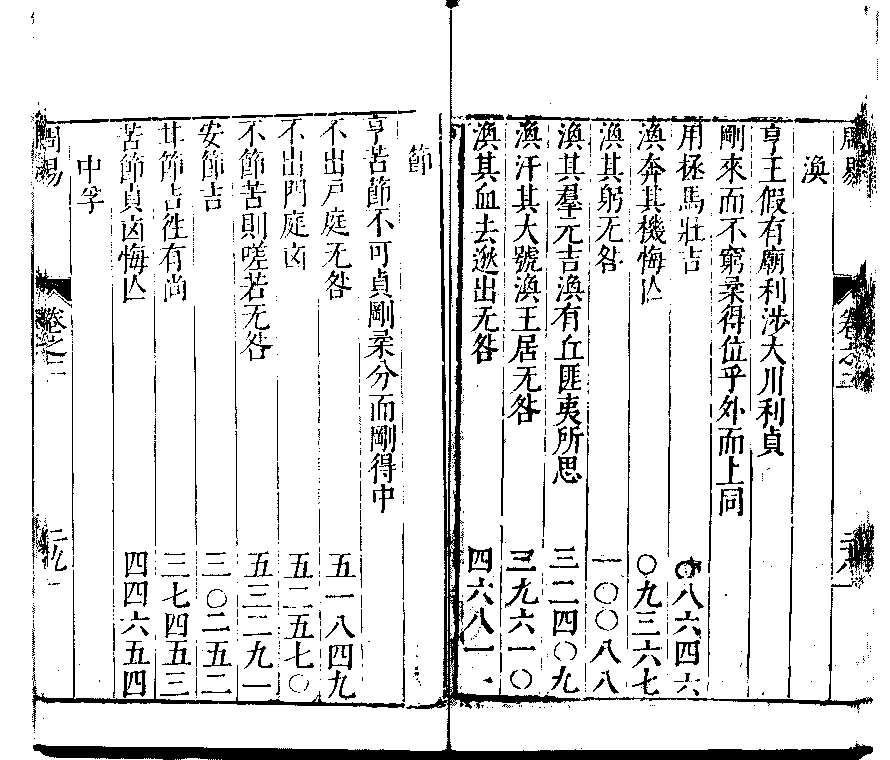 周易
渙
亨王假有廟利涉大川利貞
剛來而不窮柔得位乎外而上同
用拯馬壯吉 〇八六四六
渙奔其機悔亾 〇九三六七
渙其躬无咎 一〇〇八八
渙其羣元吉渙有丘匪夷所思 三二四〇九
渙汗其大號渙王居无咎 三九六一〇
渙其血去逖出无咎 四六八一一
節
亨苦節不可貞剛柔分而剛得中
不出戸庭无咎 五一八四九
不出門庭凶 五二五七〇
不節若則嗟若无咎 五三二九一
安節吉 三〇二五二
甘節吉徃有尚 三七四五三
苦節貞凶悔亾 四四六五四
中孚
周易
卷之二